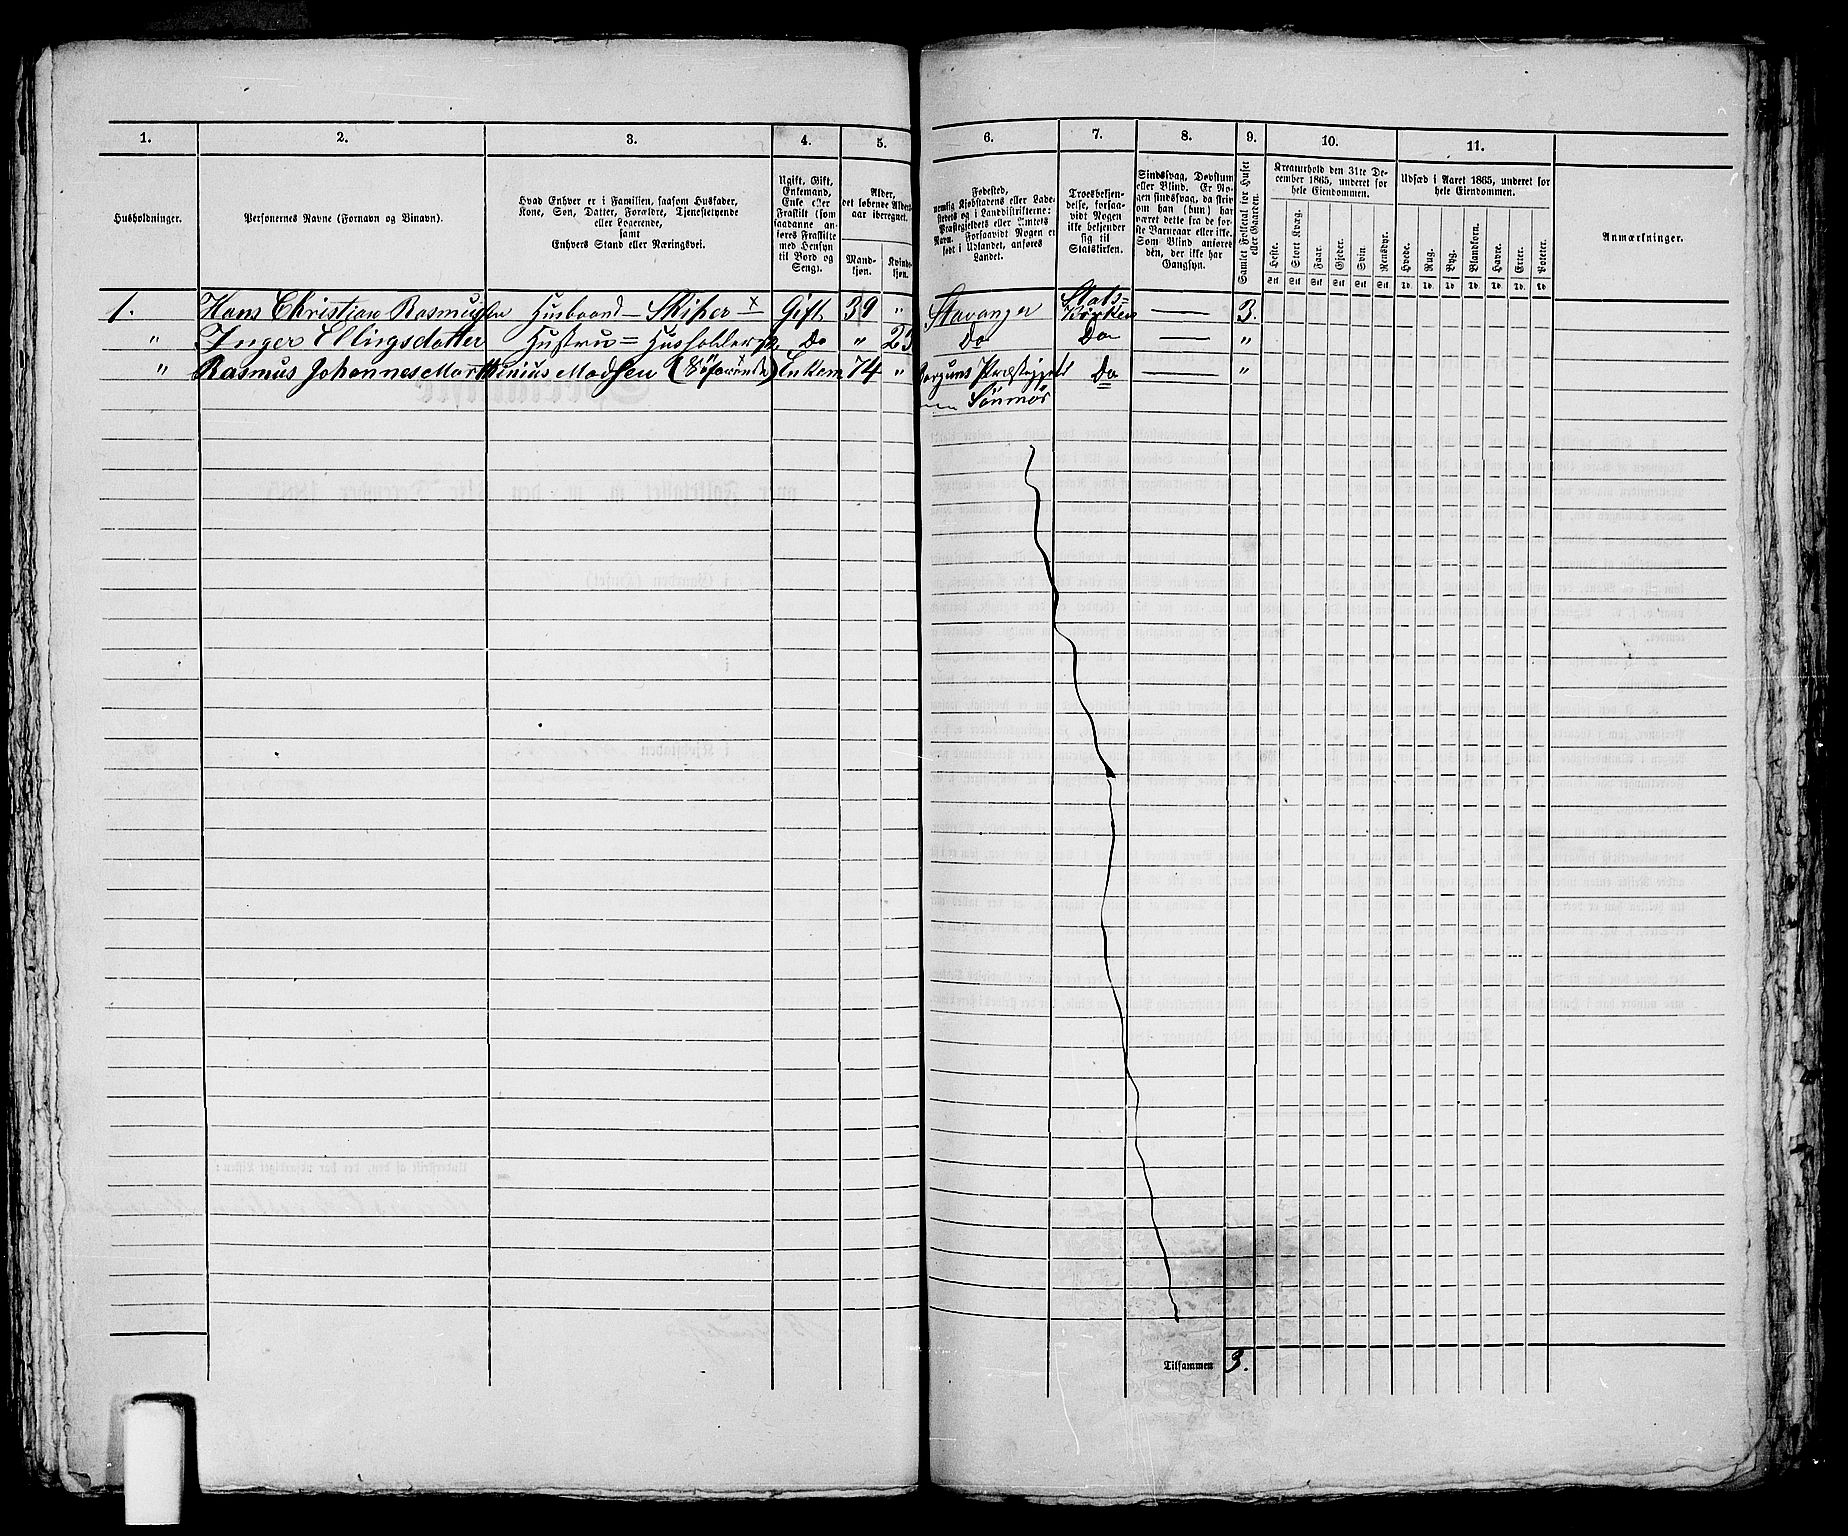 1. 2. 3. 4. 5. 6. 7. 8. 9. 10. 11.
Husholdninger.
Personernes Navne (Fornavn og Binavn).
Hvad Enhver er i Familien, saasom Husfader,
Kone, Søn, Datter, Forældre, Tjenestetyende
eller Logerende,
samt
Enhvers Stand eller Næringsvei.
Ugift, Gift,
Enkemand,
Enke eller
Fraskilt (som
saadanne an-
føres Fraskilte
med Hensyn
til Bord og
Seng).
Alder,
det løbende Alders-
aar iberegnet.
Mand-
kjøn.
Kvinde-
kjøn.
Fødested,
nemlig Kjøbstadens eller Lade-
stedets og i Landdistrikterne:
Præstegjeldets eller Amtets
Navn. Forsaavidt Nogen er
født i Udlandet, anføres
Landet.
Troesbekjen-
delse, forsaa-
vidt Nogen
ikke bekjender
sig til
Statskirken.
Sindssvag, Døvstum
eller Blind. Er No-
gen sindssvag, da skriv
om han (hun) har
været dette fra de før-
ste Barneaar eller ikke.
Som Blind anføres
den, der ikke har
Gangsyn.
Samlet Folketal for Huset
eller Gaarden.
Kreaturhold den 31te De-
cember 1865, underet for
hele Eiendommen.
Heste. Stort Kvæg. Faar. Gjeder. Svin. Rensdyr.
Stk Stk Stk Stk Stk Stk
Udsæd i Aaret 1865, underet for
hele Eiendommen.
Hvede. Rug. Byg. Blandkorn. Havre. Erter. Poteter.
Td. Td. Td. Td. Td. Td. Td.
Anmærkninger.
1. Hans Christian Rasmussen Husbaand – Skiper × Gift 39 " Stavanger Stats= Kirken — 3.
" Inger Ellingsdatter Hustru = Do " 23 Do Do — "
" Rasmus Johannes Marthinius Madsen Enkem 74 " Præstegjeld Do — "
Sönmör
Tilsammen 3.